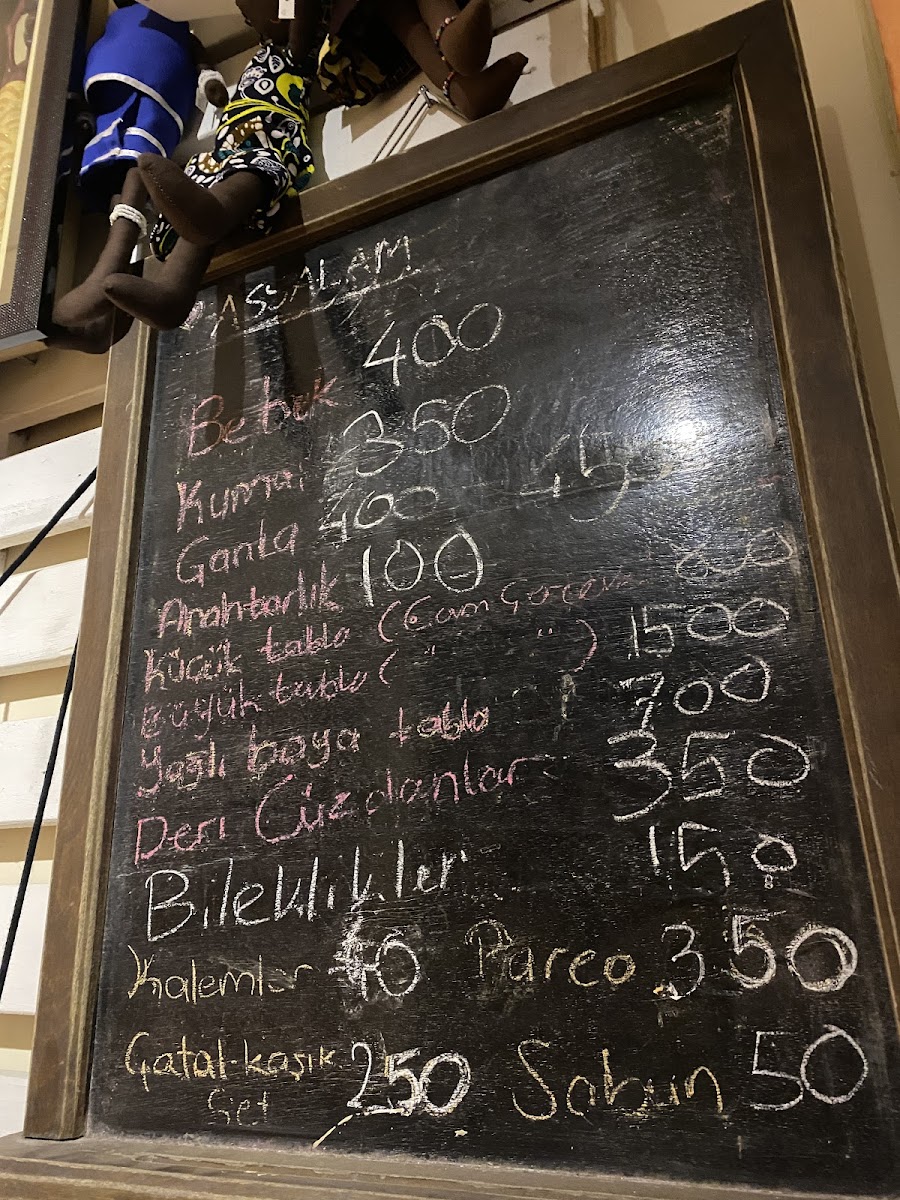 ASSALAM
Bebek 400
Kumaş 350
Çanta 400 45
Anahtarlık 100
Küçük tablo (Cam Çerçeve 800
Büyük tablo ( " " ) 1500
Yağlı boya tablo 700
Deri Cüzdanlar 350
Bileklikler 150
Kalemler 40 Pareo 350
Çatal-kaşık 250 Sabun 50
Set